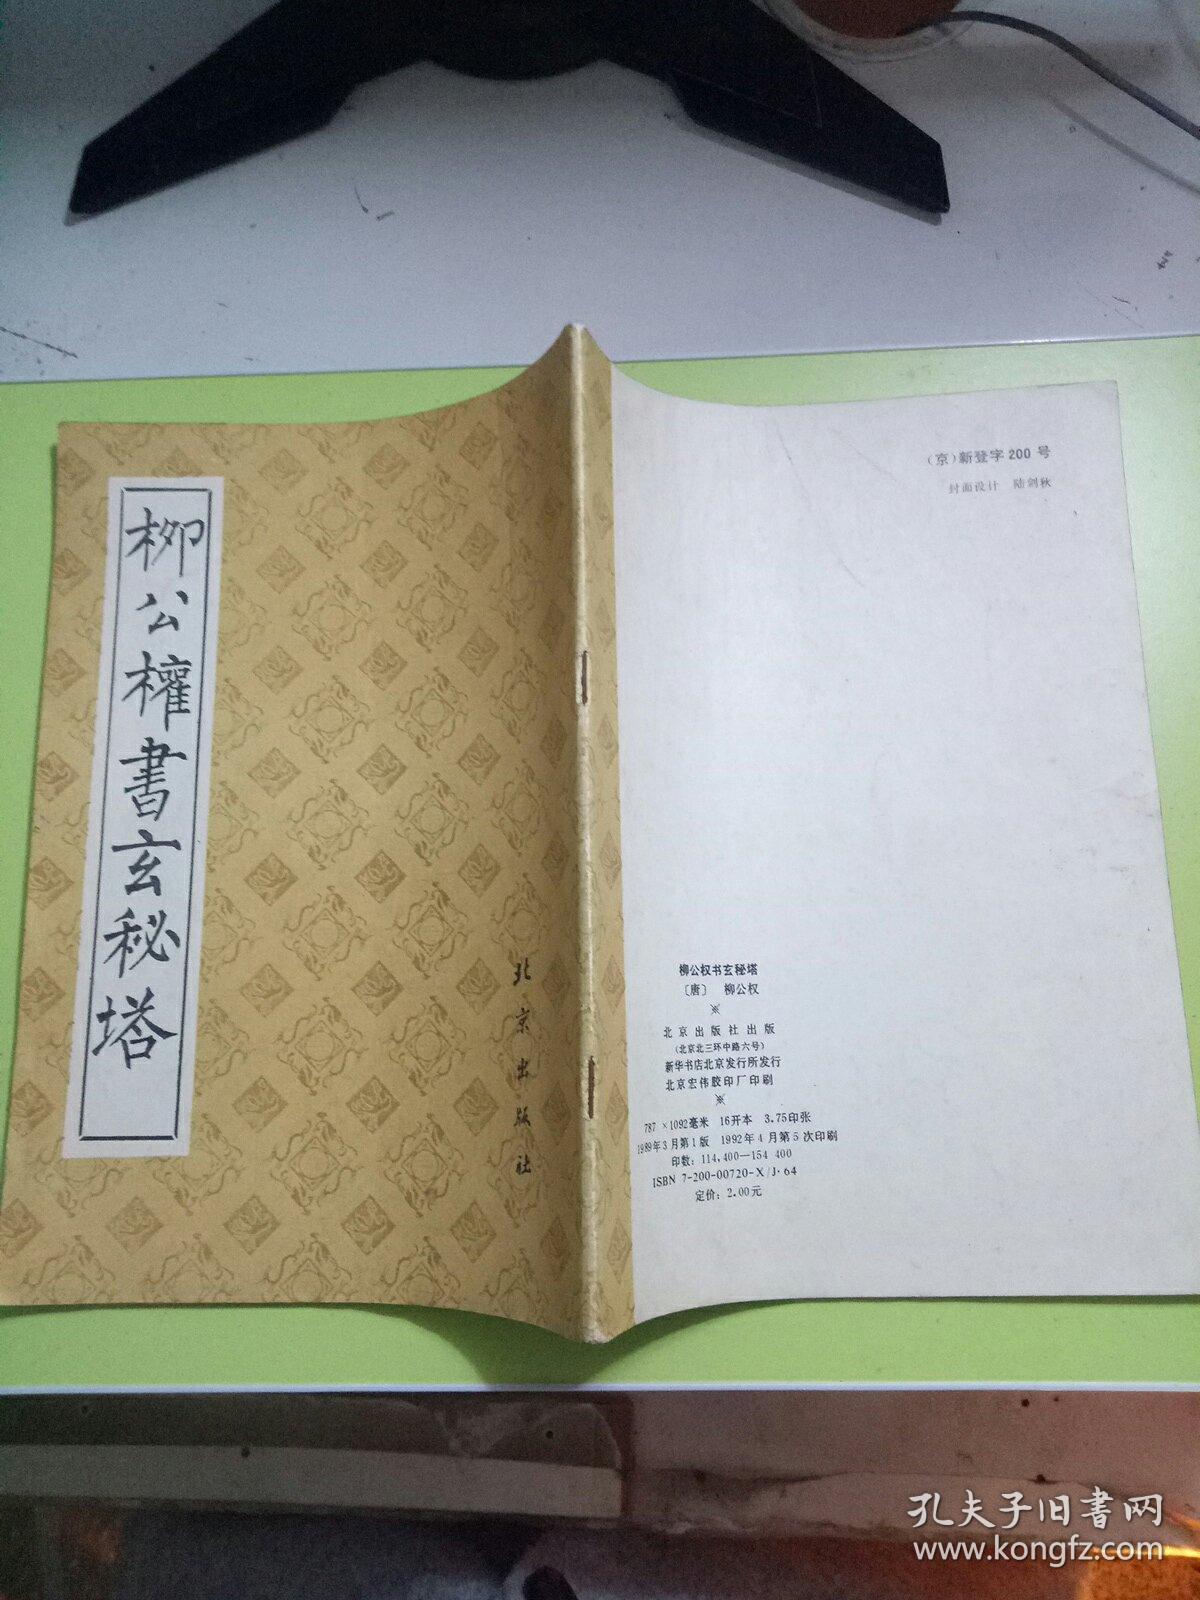 柳公權書玄秘塔
北京出版社
（京）新登字200号
封面设计 陆剑秋
柳公权书玄秘塔
〔唐〕 柳公权
※
北京出版社出版
（北京北三环中路六号）
新华书店北京发行所发行
北京宏伟胶印厂印刷
※
787×1092毫米 16开本 3.75印张
1989年3月第1版 1992年4月第5次印刷
印数：114,400—154 400
ISBN 7-200-00720-X/J·64
定价：2.00元
孔夫子旧書网
www.kongfz.com